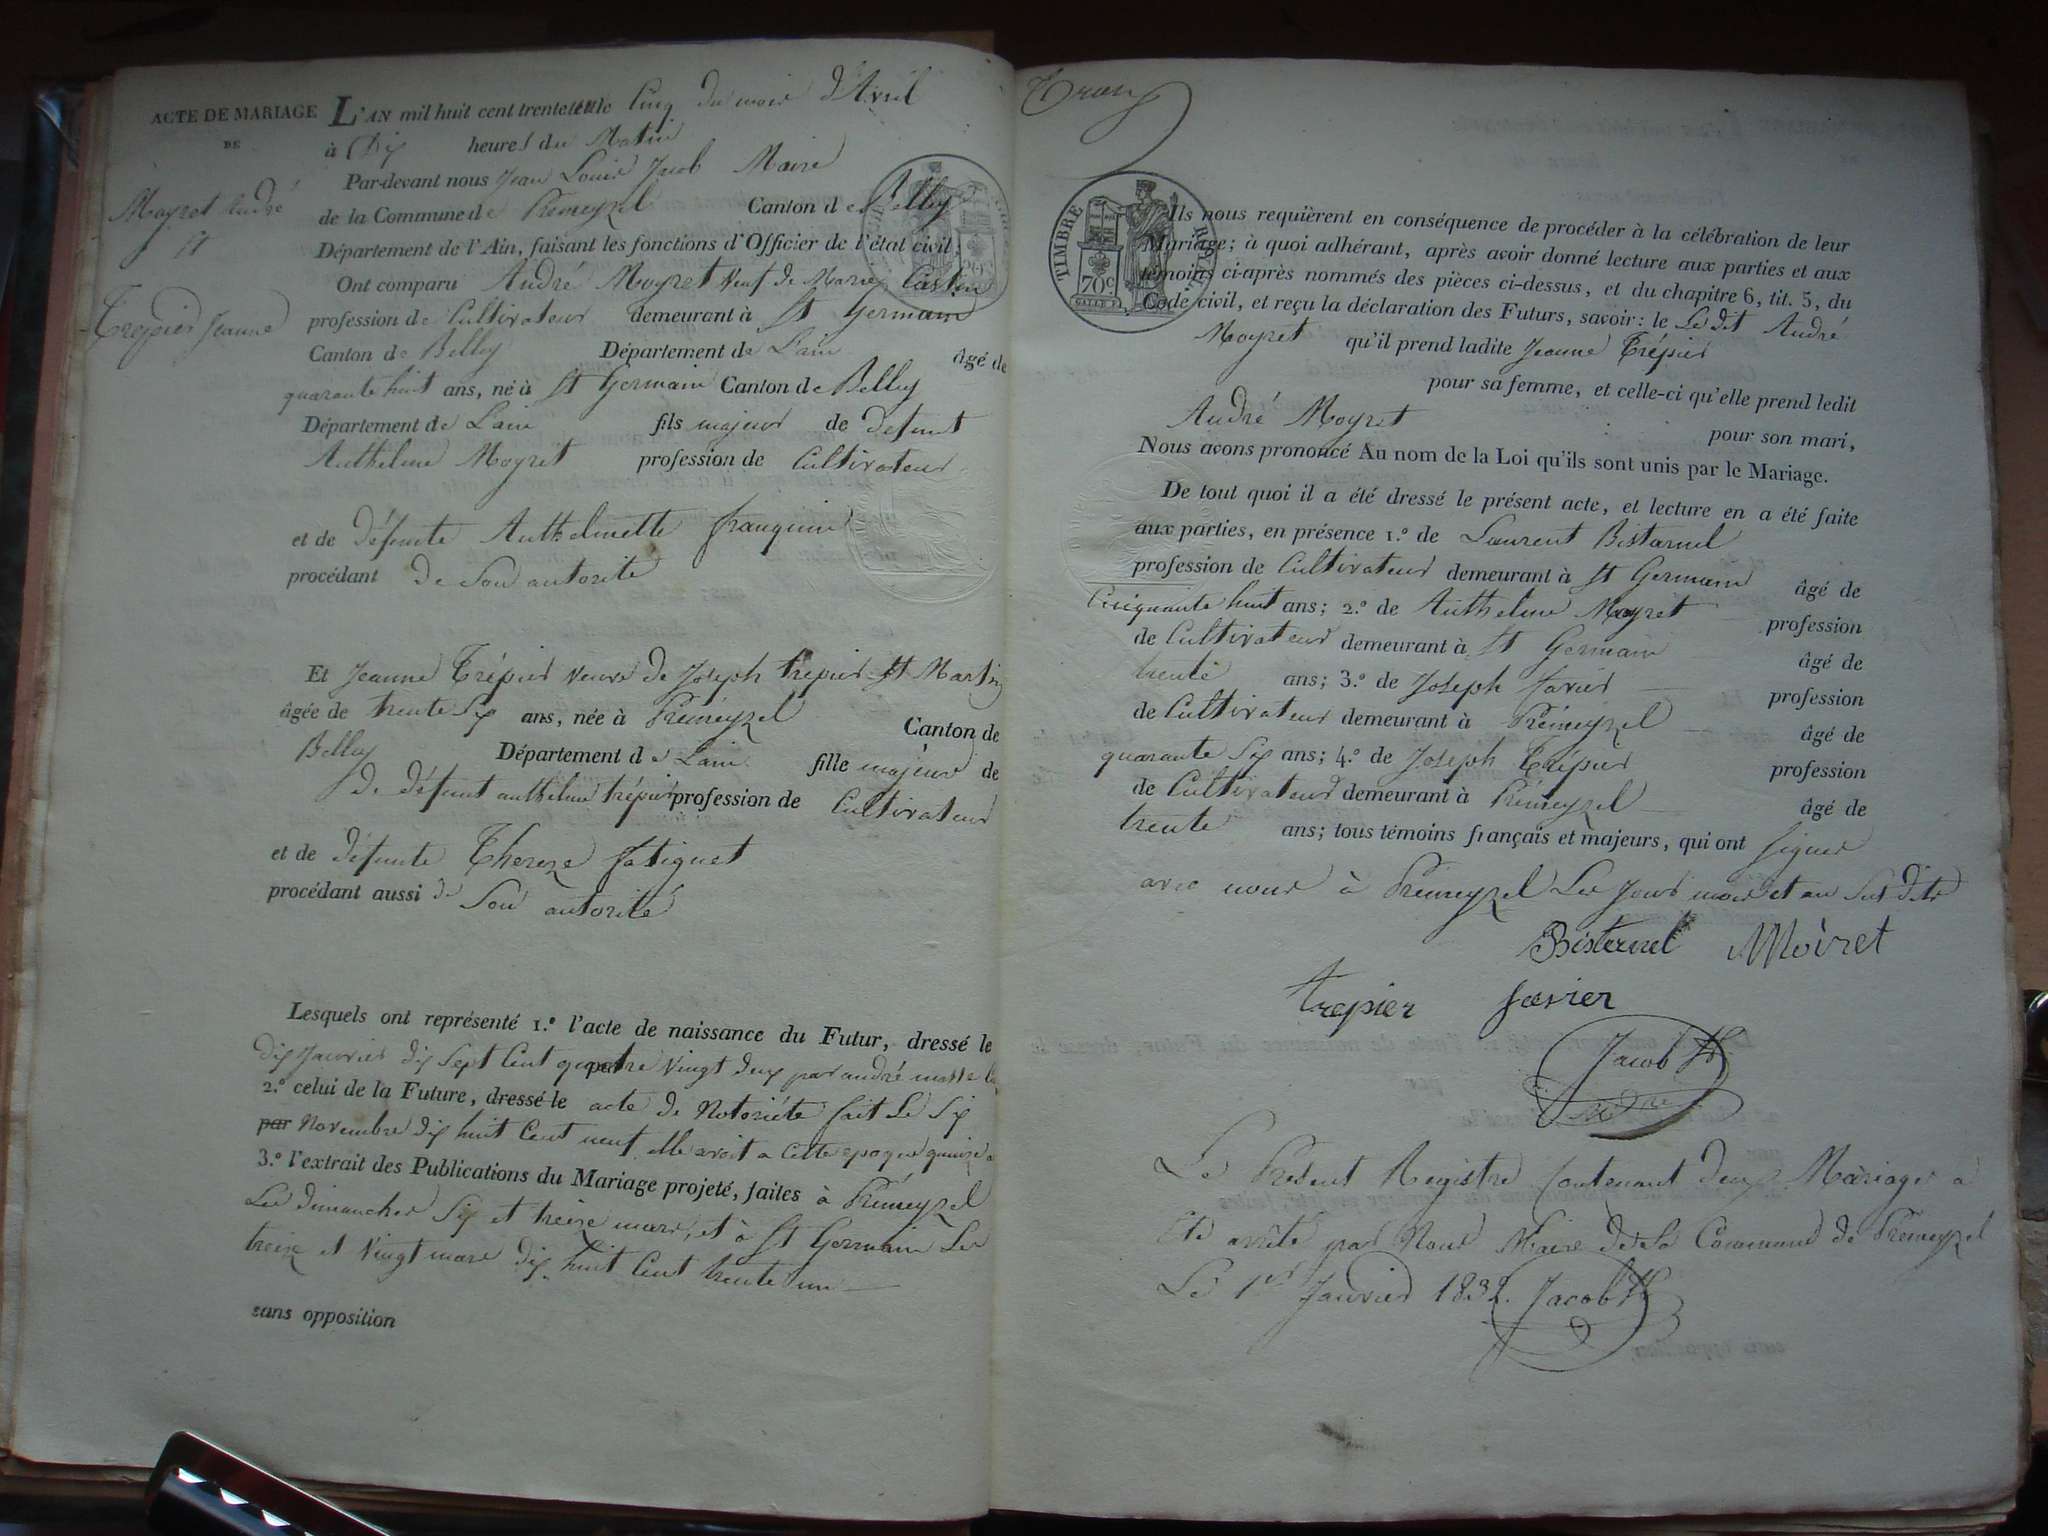 ACTE DE MARIAGE
DE
Moyret André
et
Trepier Jeanne
L'AN mil huit cent trente un le Cinq du mois d'Avril
à Dix heures du Matin
Par-devant nous Jean Louis Jacob Maire
de la Commune de Prémeyzel Canton de Belley
Département de l'Ain, faisant les fonctions d'Officier de l'état civil;
Ont comparu André Moyret Veuf de Marie Castin
profession de Cultivateur demeurant à St Germain
Canton de Belley Département de Lain âgé de
quarante huit ans, né à St Germain Canton de Belley
Département de Lain fils majeur de défunt
Anthelme Moyret profession de Cultivateur
et de défunte Anthelmette franquin
procédant de Son autorité
Et Jeanne Trépier veuve de Joseph trepier St Martin
âgée de trente Six ans, née à Prémeyzel Canton de
Belley Département de Lain fille majeur de
de défunt anthelme trépier profession de Cultivateur
et de défunte Thereze fatiguet
procédant aussi de Son autorité
Lesquels ont représenté 1.º l'acte de naissance du Futur, dressé le
dix Janvier dix Sept Cent quatre Vingt deux par andré
2.º celui de la Future, dressé le acte de Notoriété fait Le Six
par Novembre dix huit Cent neuf elle avoit a Cette epoque quinze a
3.º l'extrait des Publications du Mariage projeté, faites à Prémeyzel
Les dimanches Six et treize mars, et à St Germain Les
treize et Vingt mars dix huit Cent trente un
sans opposition
TIMBRE ROYAL
70c
Ils nous requièrent en conséquence de procéder à la célébration de leur
Mariage; à quoi adhérant, après avoir donné lecture aux parties et aux
témoins ci-après nommés des pièces ci-dessus, et du chapitre 6, tit. 5, du
Code civil, et reçu la déclaration des Futurs, savoir: le Le dit André
Moyret qu'il prend ladite Jeanne Trépier
pour sa femme, et celle-ci qu'elle prend ledit
André Moyret pour son mari,
Nous avons prononcé Au nom de la Loi qu'ils sont unis par le Mariage.
De tout quoi il a été dressé le présent acte, et lecture en a été faite
aux parties, en présence 1.º de Laurent Bistarnel
profession de Cultivateur demeurant à St Germain âgé de
Cinquante huit ans; 2.º de Anthelme Moyret profession
de Cultivateur demeurant à St Germain âgé de
trente ans; 3.º de Joseph favier profession
de Cultivateur demeurant à Prémeyzel âgé de
quarante Six ans; 4.º de Joseph Trépier profession
de Cultivateur demeurant à Prémeyzel âgé de
trente ans; tous témoins français et majeurs, qui ont signer
avec nous à Prémeyzel Les Jour mois et an Sus dits
Bisternel Moiret
trepier favier
Jacob
Le Présent Registre Contenant deux Mariages a
Eté arrêté par Nous Maire de la Commune de Prémeyzel
Le 1er Janvier 1832. Jacob